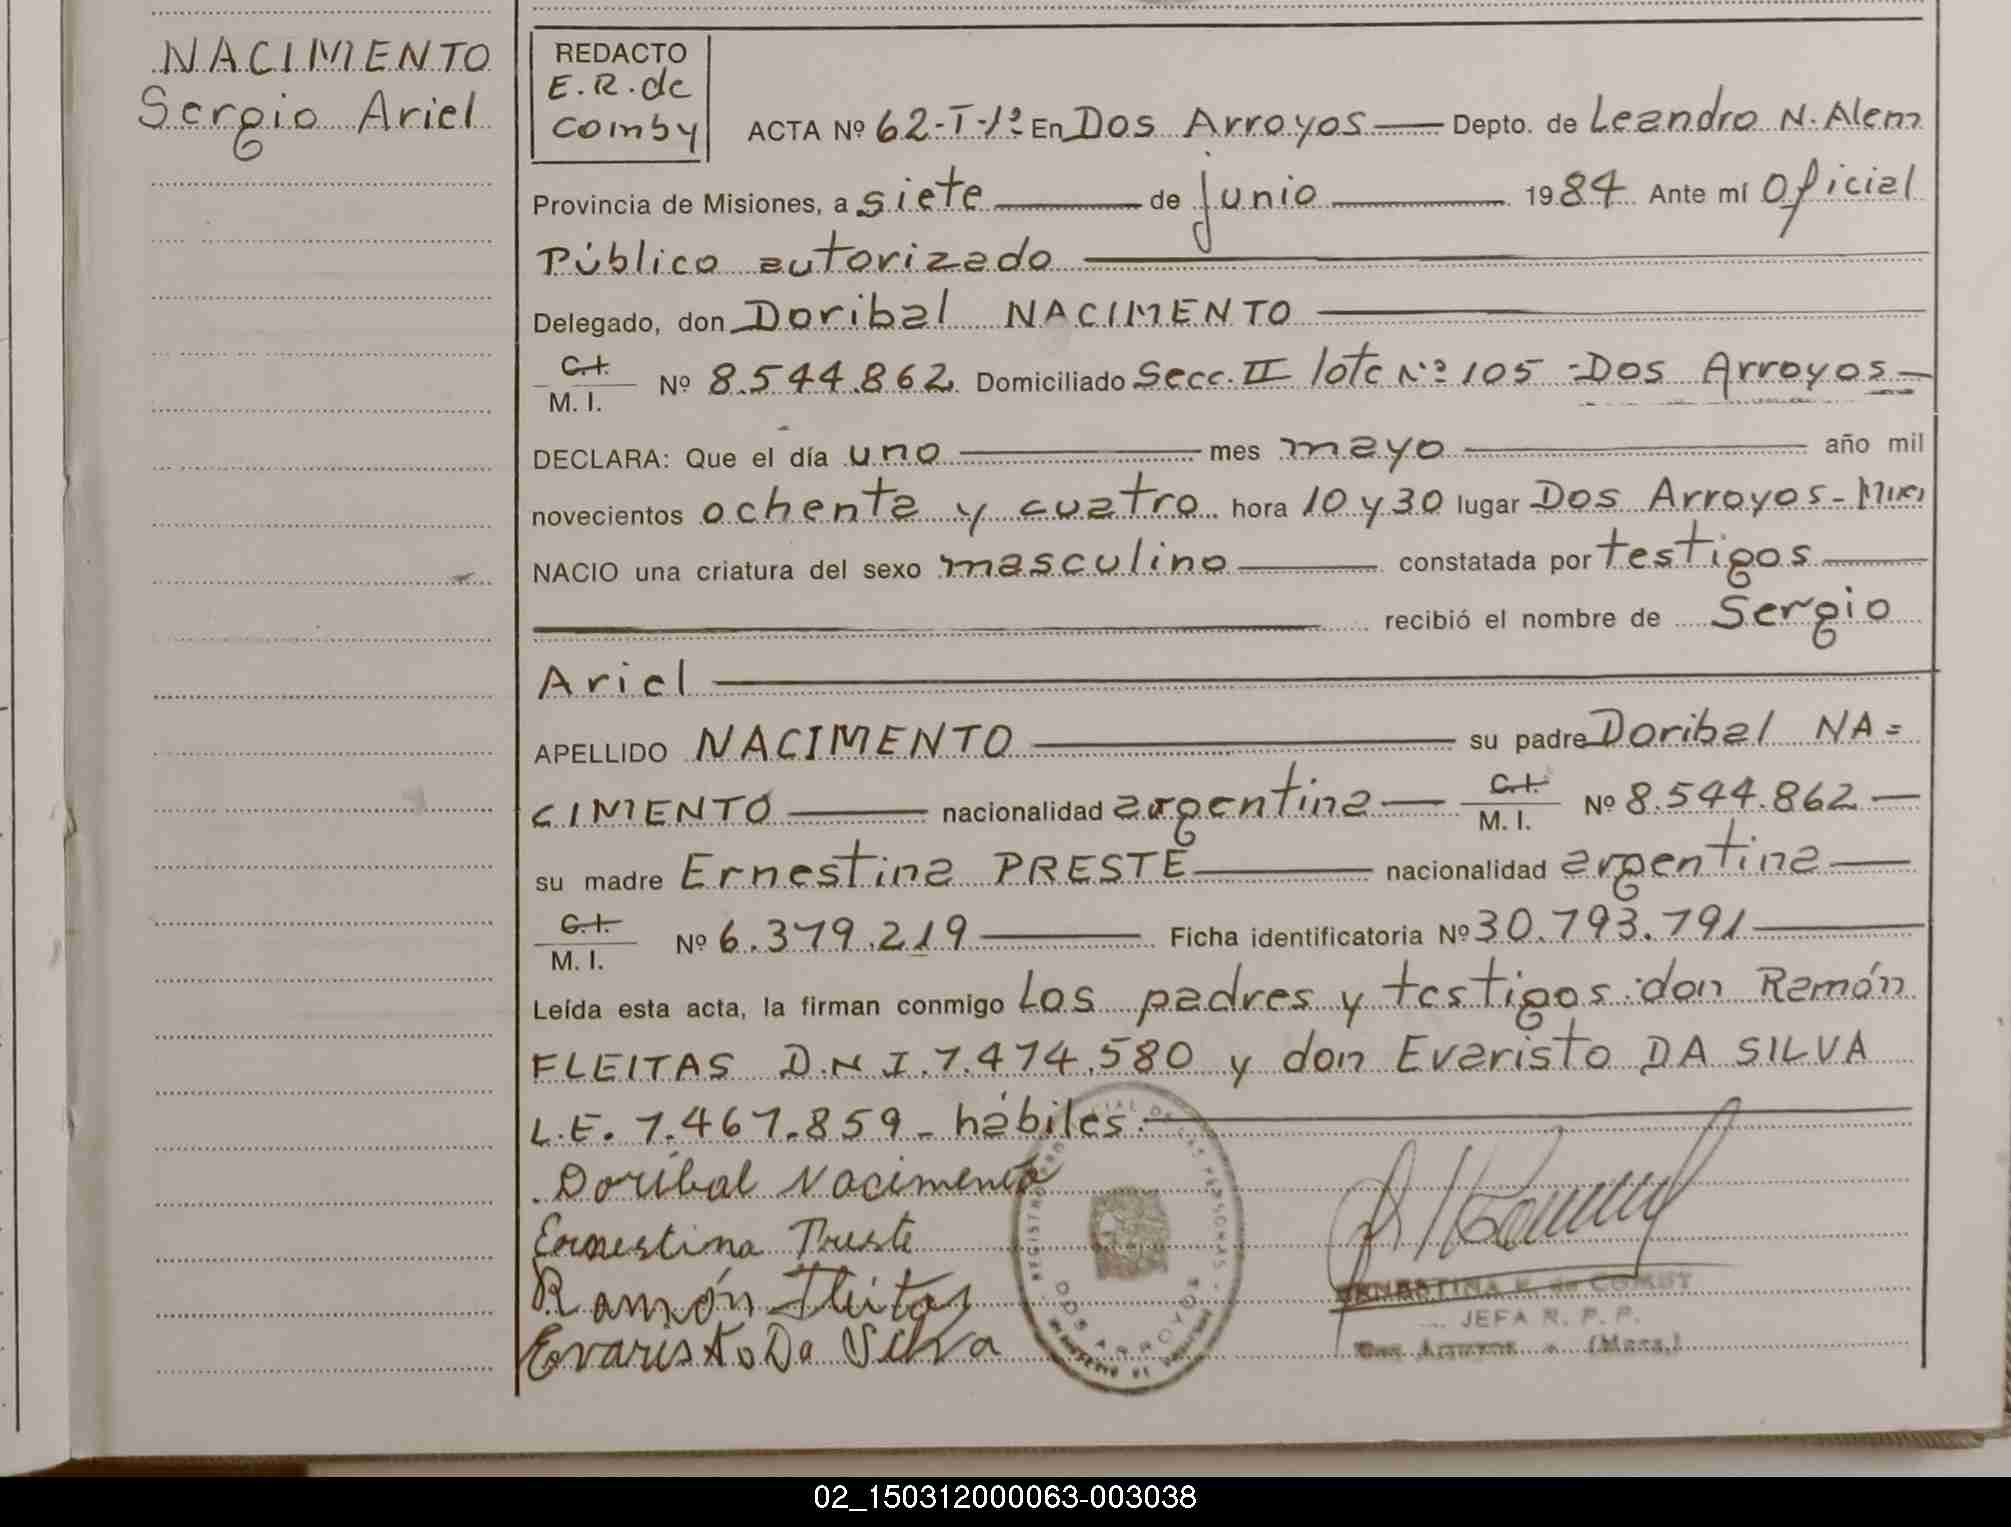 NACIMIENTO
Sergio Ariel
REDACTO
E.R. de
Comby
ACTA Nº 62-T-1º En Dos Arroyos — Depto. de Leandro N. Alem
Provincia de Misiones, a siete — de junio — 1984 Ante mí Oficial
Público autorizado —
Delegado, don Doribal NACIMENTO —
C.I. / M. I. Nº 8.544.862 Domiciliado Secc. II lote Nº 105 - Dos Arroyos —
DECLARA: Que el día uno — mes mayo — año mil
novecientos ochenta y cuatro hora 10 y 30 lugar Dos Arroyos-
NACIO una criatura del sexo masculino — constatada por testigos —
— recibió el nombre de Sergio
Ariel —
APELLIDO NACIMENTO — su padre Doribal NA=
CIMIENTO — nacionalidad argentina — C.I. / M. I. Nº 8.544.862 —
su madre Ernestina PRESTE — nacionalidad argentina —
C.I. / M. I. Nº 6.379.219 — Ficha identificatoria Nº 30.793.791 —
Leída esta acta, la firman conmigo los padres y testigos: don Ramón
FLEITAS D.N.I. 7.474.580 y don Evaristo DA SILVA
L.E. 7.467.859 - hábiles. —
Doribal Nacimento
Ernestina Preste
Ramón Fleitas
Evaristo Da Silva
DOS ARROYOS
ERNESTINA R. de COMBY
JEFA R. P. P.
Dos Arroyos - (Mnes.)
02_150312000063-003038